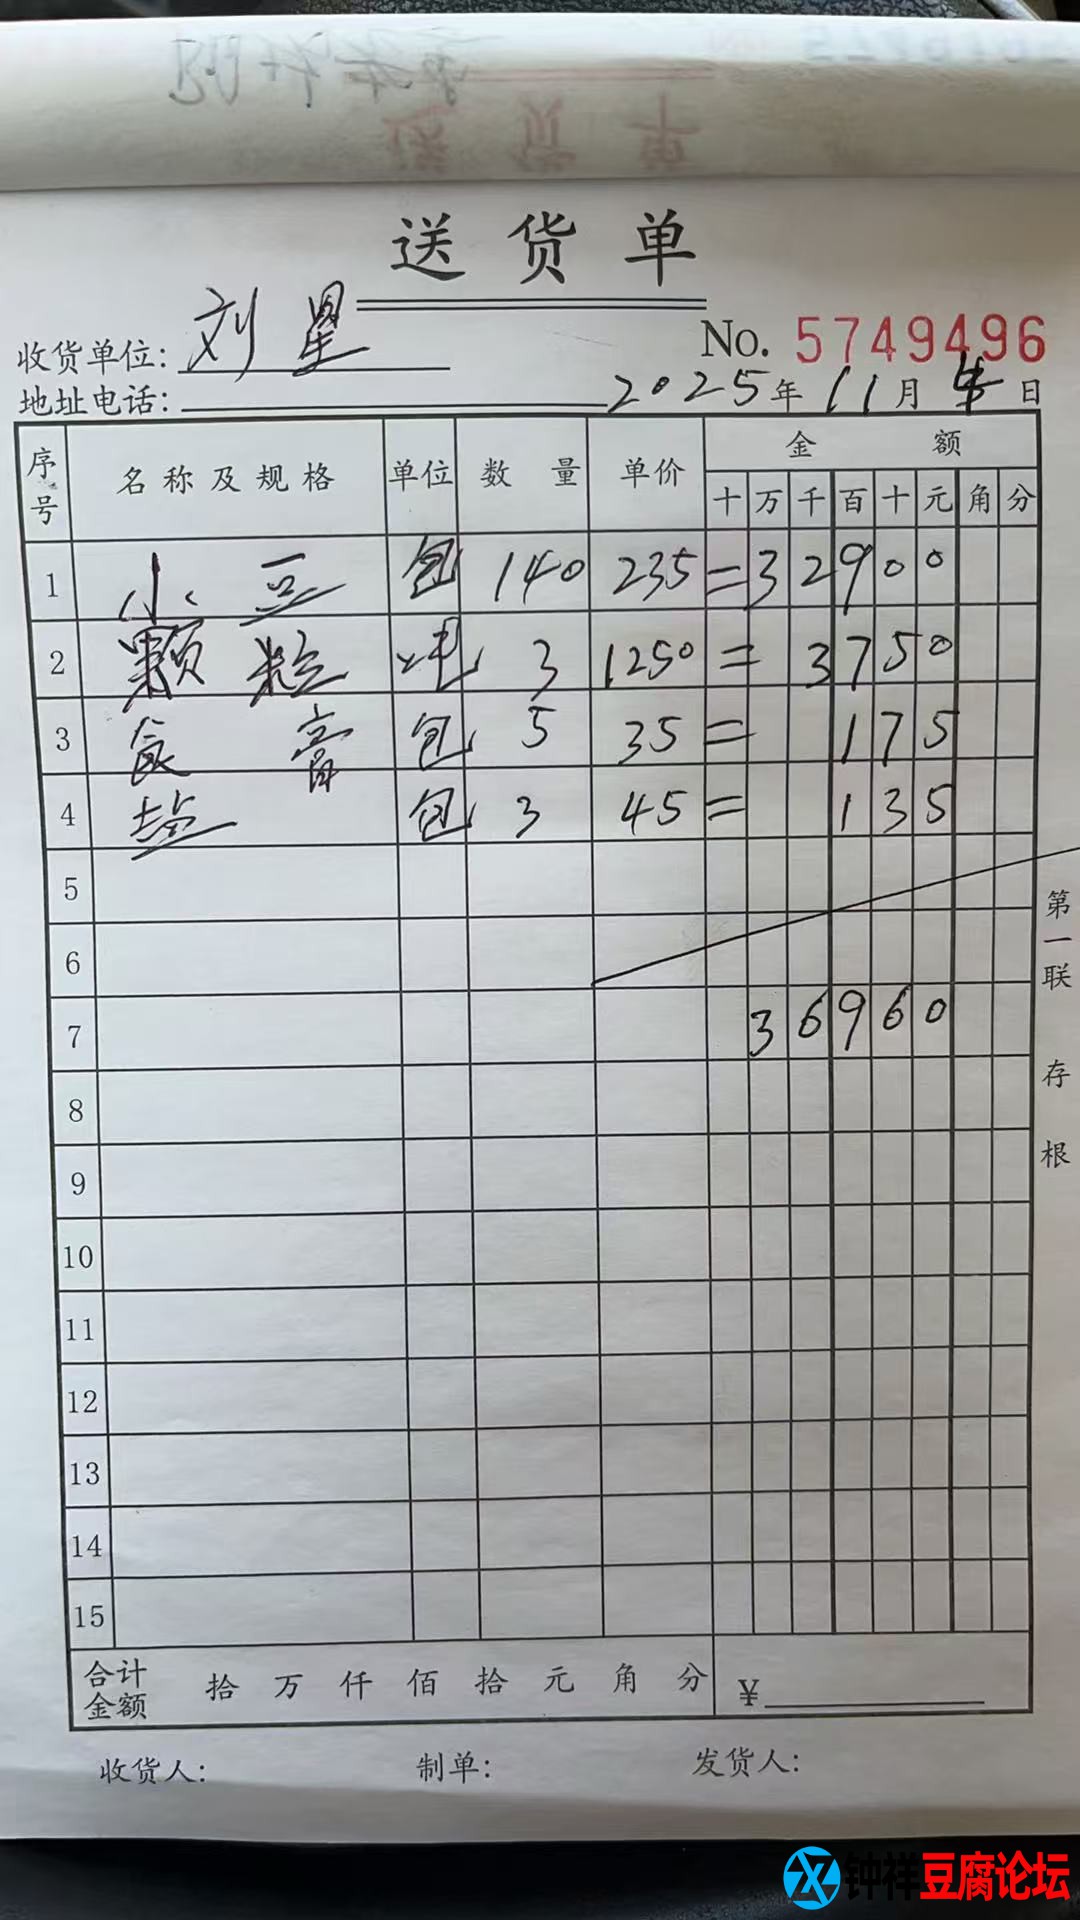 送货单
收货单位: 刘星
No. 5749496
地址电话: 2025年11月 日
序号 名称及规格 单位 数量 单价 金额
十 万 千 百 十 元 角 分
1 小豆 包 140 235 = 32900
2 颗粒 吨 3 1250 = 3750
3 食膏 包 5 35 = 175
4 盐 包 3 45 = 135
5
6
7 36960
8
9
10
11
12
13
14
15
第一联 存根
合计金额 拾 万 仟 佰 拾 元 角 分 ¥
收货人: 制单: 发货人:
钟祥豆腐论坛